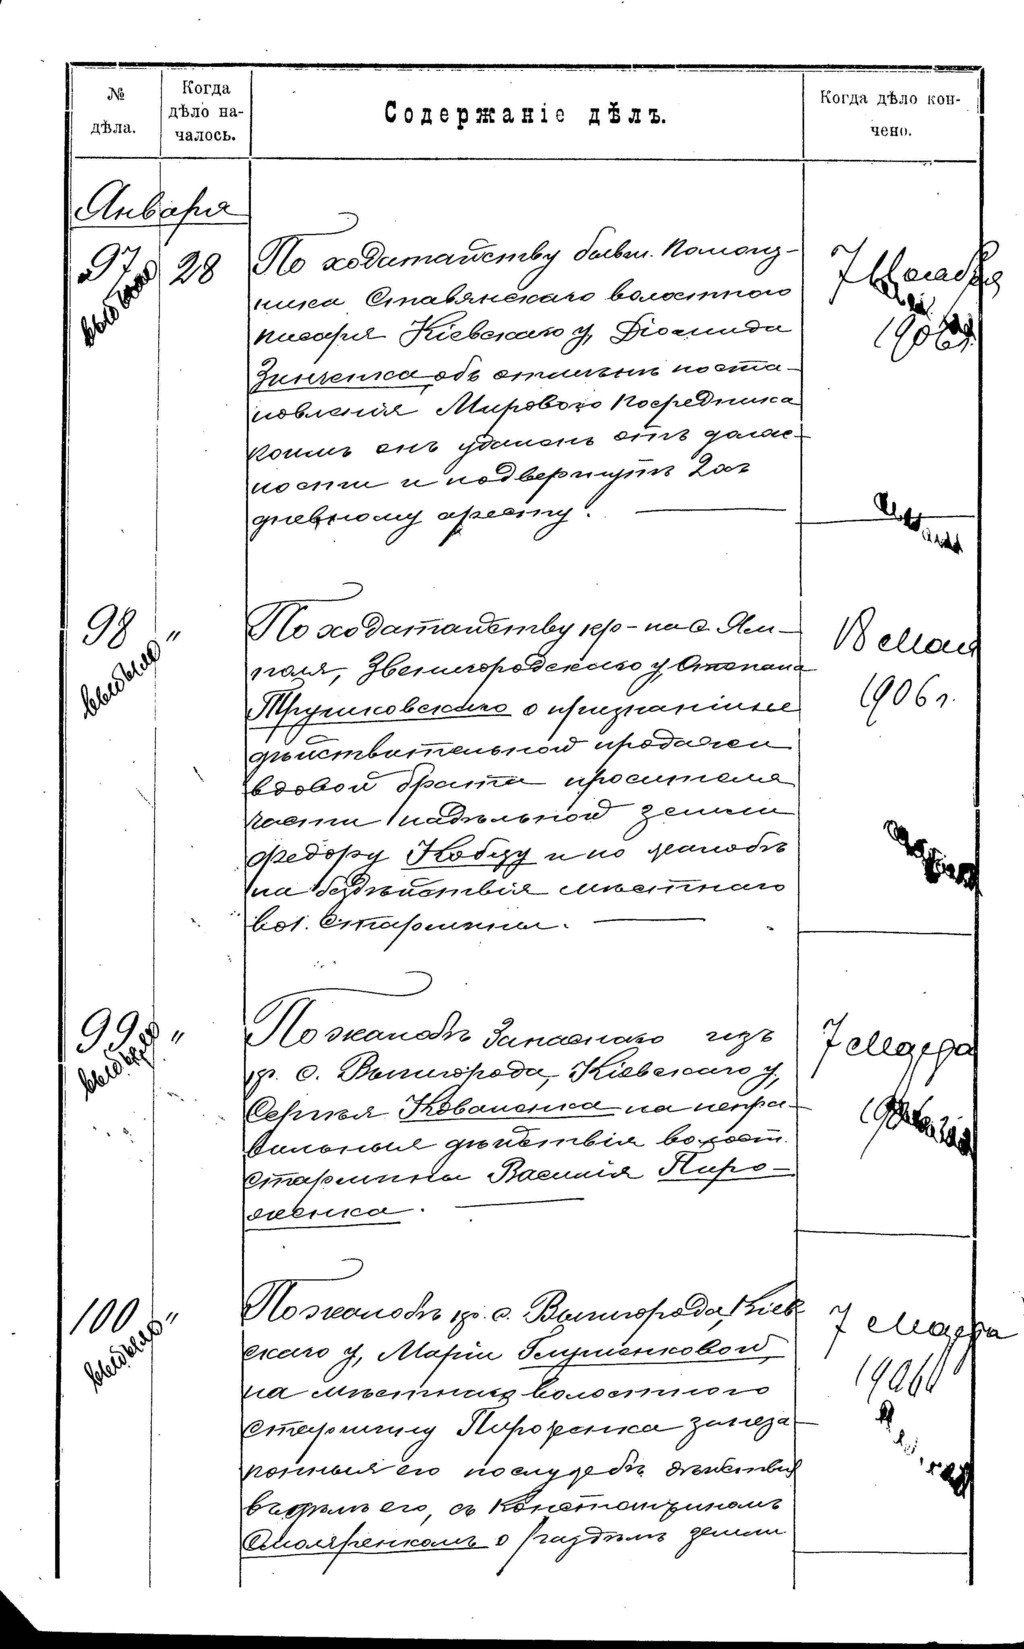 № дѣла.
Когда дѣло на-
чалось.
Содержаніе дѣлъ.
Когда дѣло кон-
чено.
Января
97
выбыло
28
По ходатайству бывш. Помощ-
ника Ставянскаго волостного
писаря Кіевскаго у, Діомида
Зинченка объ отмѣнѣ поста-
новленія Мирового Посредника
коимъ онъ удаленъ отъ долж-
ности и подвергнутъ 2хъ
дневному аресту.
7 Ноября
1906г.
98
выбыло
"
По ходатайству кр-на с. Ям-
поля, Звенигородскаго у, Степана
Трушковскаго о признаніи не
дѣйствительной продажи
вдовой брата просителя
части надѣльной земли
Федору Кобзу и по жалобѣ
на бездѣйствія мѣстнаго
вол. Старшины.
18 Мая
1906 г.
99
выбыло
"
По жалобѣ Запаснаго изъ
кр. с. Вышгорода, Кіевскаго у,
Сергѣя Коваленка на непра-
вильныя дѣйствія волост.
старшины Василія Пиро-
женка.
7 Марта
100
выбыло
"
По жалобѣ кр. с. Вышгорода, Кіев-
скаго у, Маріи Глущенковой,
на мѣстнаго волостного
Старшину Пироженка за неза-
конныя его по службѣ дѣйствія
въ дѣлѣ его, съ Константиномъ
Смоляренкомъ о раздѣлѣ земли
7 Марта
1906